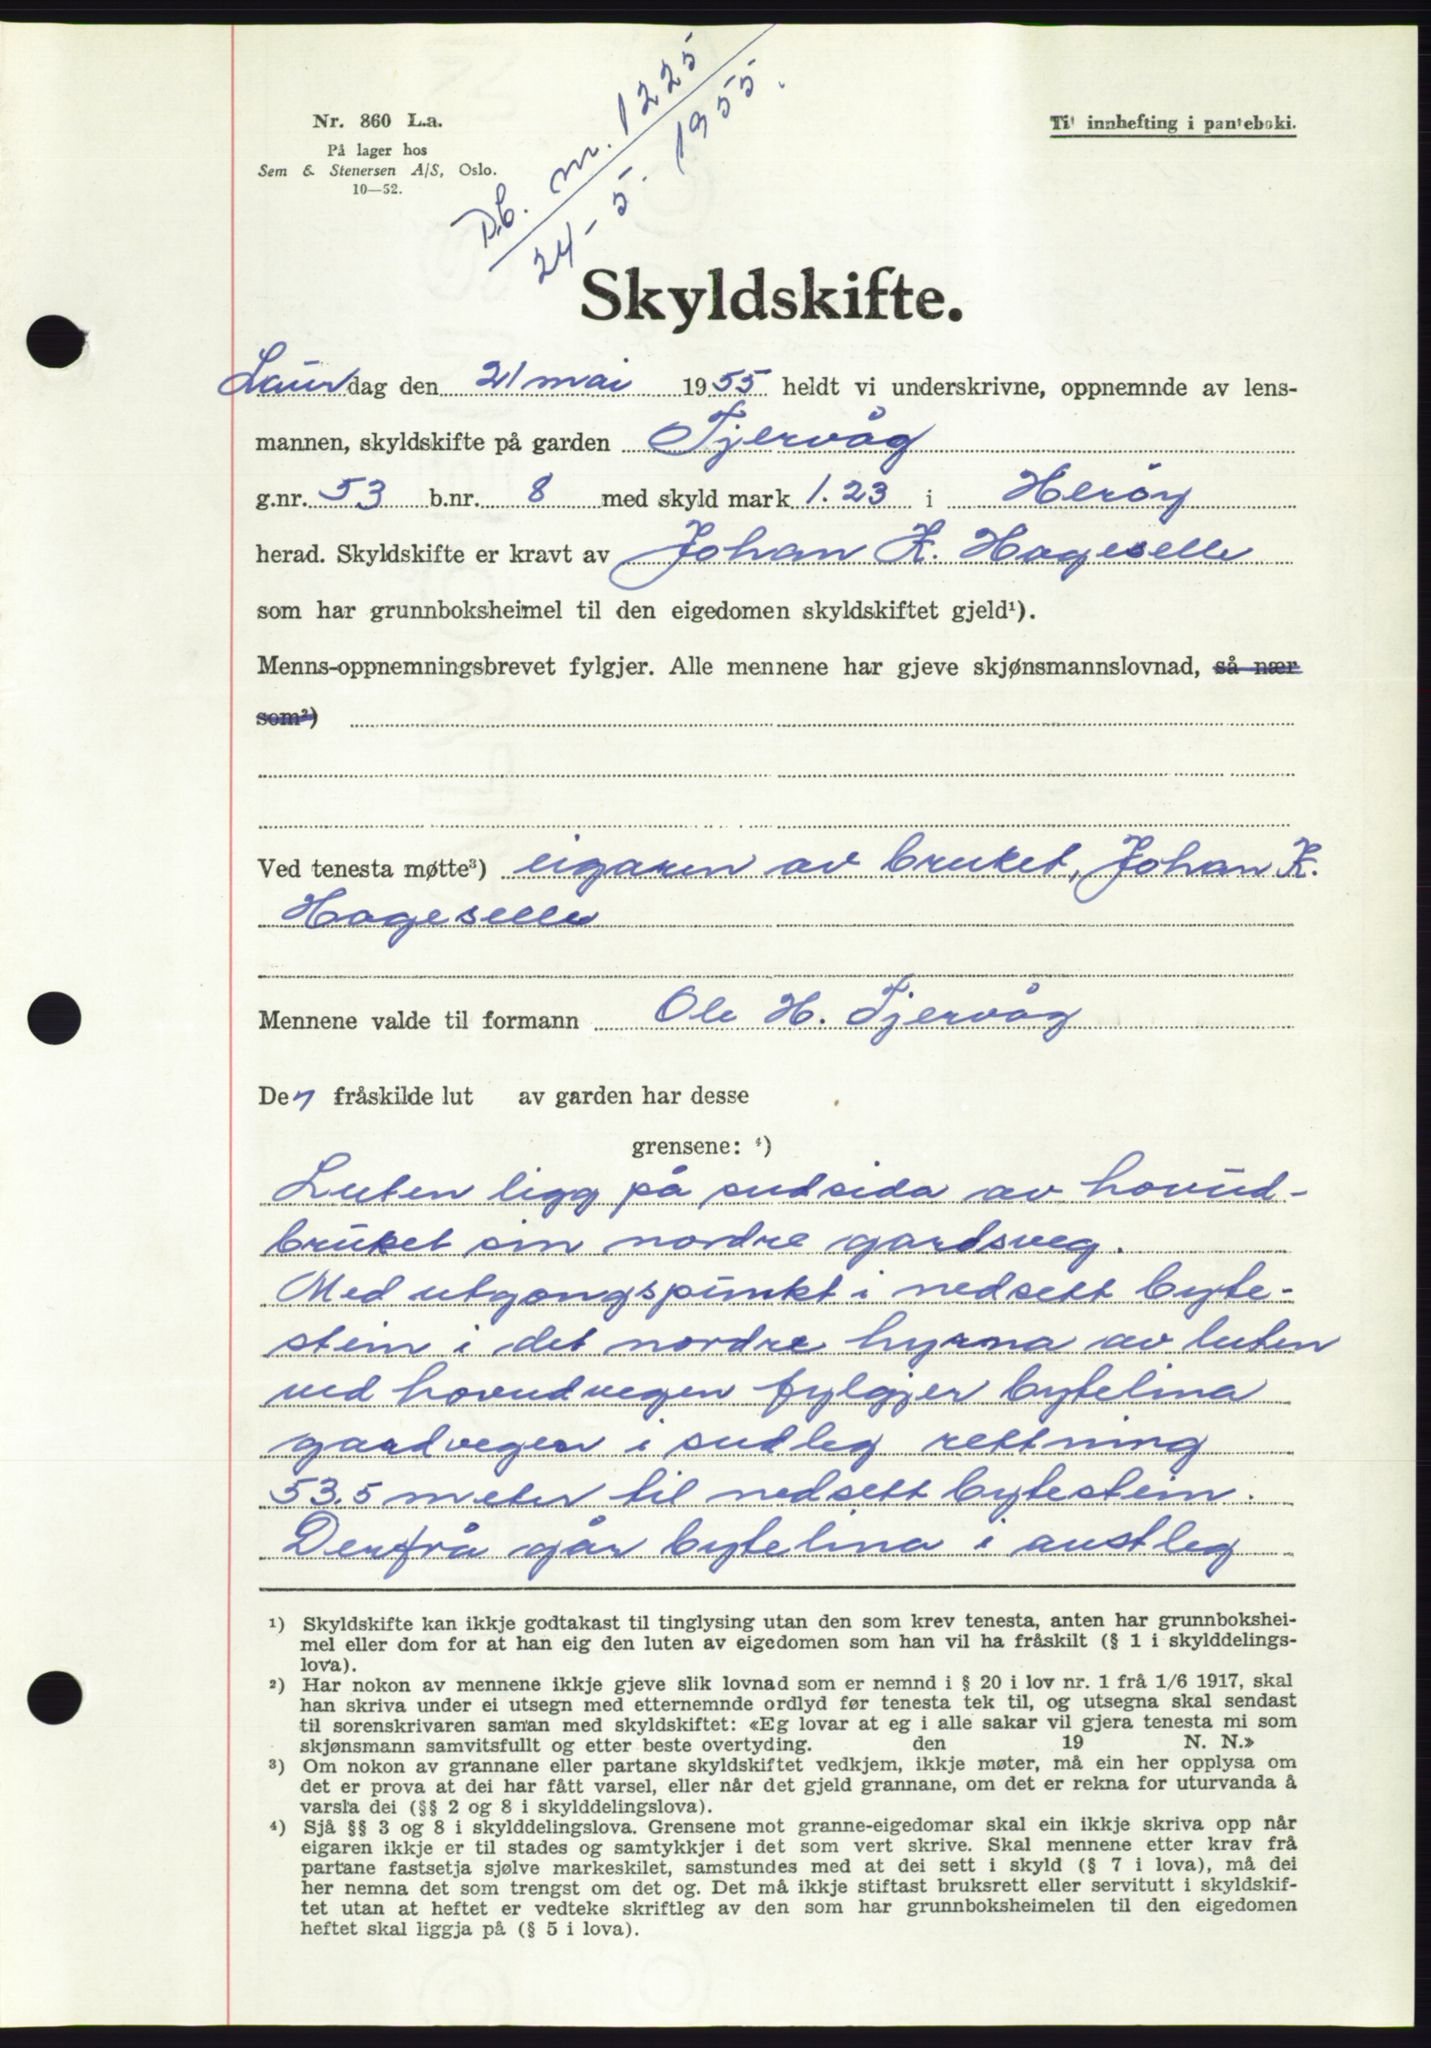 Nr. 860 L.a.
På lager hos
Sem & Stenersen A/S, Oslo.
10—52.
D.b. nr. 1225
24-5. 1955.
Til innhefting i panteboki.
Skyldskifte.
Laurdag den 21 mai 1955 heldt vi underskrivne, oppnemnde av lens-
mannen, skyldskifte på garden Tjervåg
g.nr. 53 b.nr. 8 med skyld mark 1.23 i Herøy
herad. Skyldskifte er kravt av Johan K. Hageselle
som har grunnboksheimel til den eigedomen skyldskiftet gjeld¹).
Menns-oppnemningsbrevet fylgjer. Alle mennene har gjeve skjønsmannslovnad, så nær
som²)
Ved tenesta møtte³) eigaren av bruket, Johan K.
Hageselle
Mennene valde til formann Ole H. Tjervåg
Den fråskilde lut av garden har desse
grensene: ⁴)
Luten ligg på sudsida av hovud-
bruket sin nordre gardsveg.
Med utgongspunkt i nedsett byte-
stein i det nordre hyrna av luten
ved hovudvegen fylgjer bytelina
gardvegen i sudleg rettning
53,5 meter til nedsett bytestein.
Derfrå går bytelina i austleg
¹) Skyldskifte kan ikkje godtakast til tinglysing utan den som krev tenesta, anten har grunnbokshei-
mel eller dom for at han eig den luten av eigedomen som han vil ha fråskilt (§ 1 i skylddelings-
lova).
²) Har nokon av mennene ikkje gjeve slik lovnad som er nemnd i § 20 i lov nr. 1 frå 1/6 1917, skal
han skriva under ei utsegn med etternemnde ordlyd før tenesta tek til, og utsegna skal sendast
til sorenskrivaren saman med skyldskiftet: «Eg lovar at eg i alle sakar vil gjera tenesta mi som
skjønsmann samvitsfullt og etter beste overtyding. den 19 N. N.»
³) Om nokon av grannane eller partane skyldskiftet vedkjem, ikkje møter, må ein her opplysa om
det er prova at dei har fått varsel, eller når det gjeld grannane, om det er rekna for uturvanda å
varsla dei (§§ 2 og 8 i skylddelingslova).
⁴) Sjå §§ 3 og 8 i skylddelingslova. Grensene mot granne-eigedomar skal ein ikkje skriva opp når
eigaren ikkje er til stades og samtykkjer i det som vert skrive. Skal mennene etter krav frå
partane fastsetja sjølve markeskilet, samstundes med at dei sett i skyld (§ 7 i lova), må dei
her nemna det som trengst om det og. Det må ikkje stiftast bruksrett eller servitutt i skyldskif-
tet utan at heftet er vedteke skriftleg av den som har grunnboksheimelen til den eigedomen
heftet skal liggja på (§ 5 i lova).